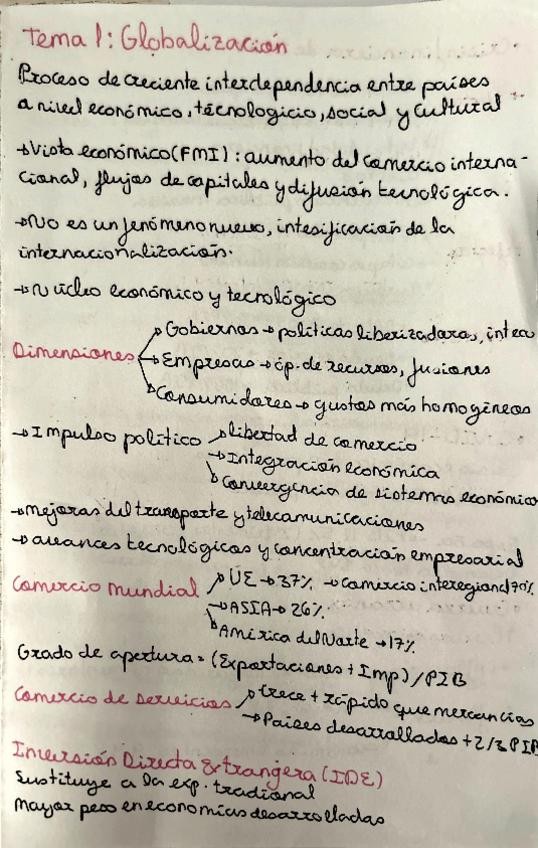 Tema 1: Globalización
Proceso de creciente interdependencia entre países
a nivel económico, técnologicio, social y cultural
→ Vista económico (FMI): aumento del comercio interna-
cional, flujos de capitales y difusión tecnológica.
→ No es un fenómeno nuevo, intesificación de la
internacionalización.
→ Núcleo económico y tecnológico
→ Gobiernos → políticas liberizadoras, integ
Dimensiones → Empresas → óp. de recursos, fusiones
→ Consumidores → gustos más homogéneos
→ Impulso político → libertad de comercio
→ Integración económica
→ Convergencia de sistemas económico
→ mejoras del transporte y telecomunicaciones
→ avances tecnológicos y concentración empresarial
Comercio mundial → UE → 37% → Comercio interegional 70%
→ ASIA → 26%
→ América del Norte → 17%
Grado de apertura = (Exportaciones + Imp) / PIB
Comercio de servicios → Crece + rápido que mercancías
→ Países desarrollados + 2/3 PIB
Inversión Directa Extrangera (IDE)
Sustituye a la exp. tradional
Mayor peso en economías desarrolladas